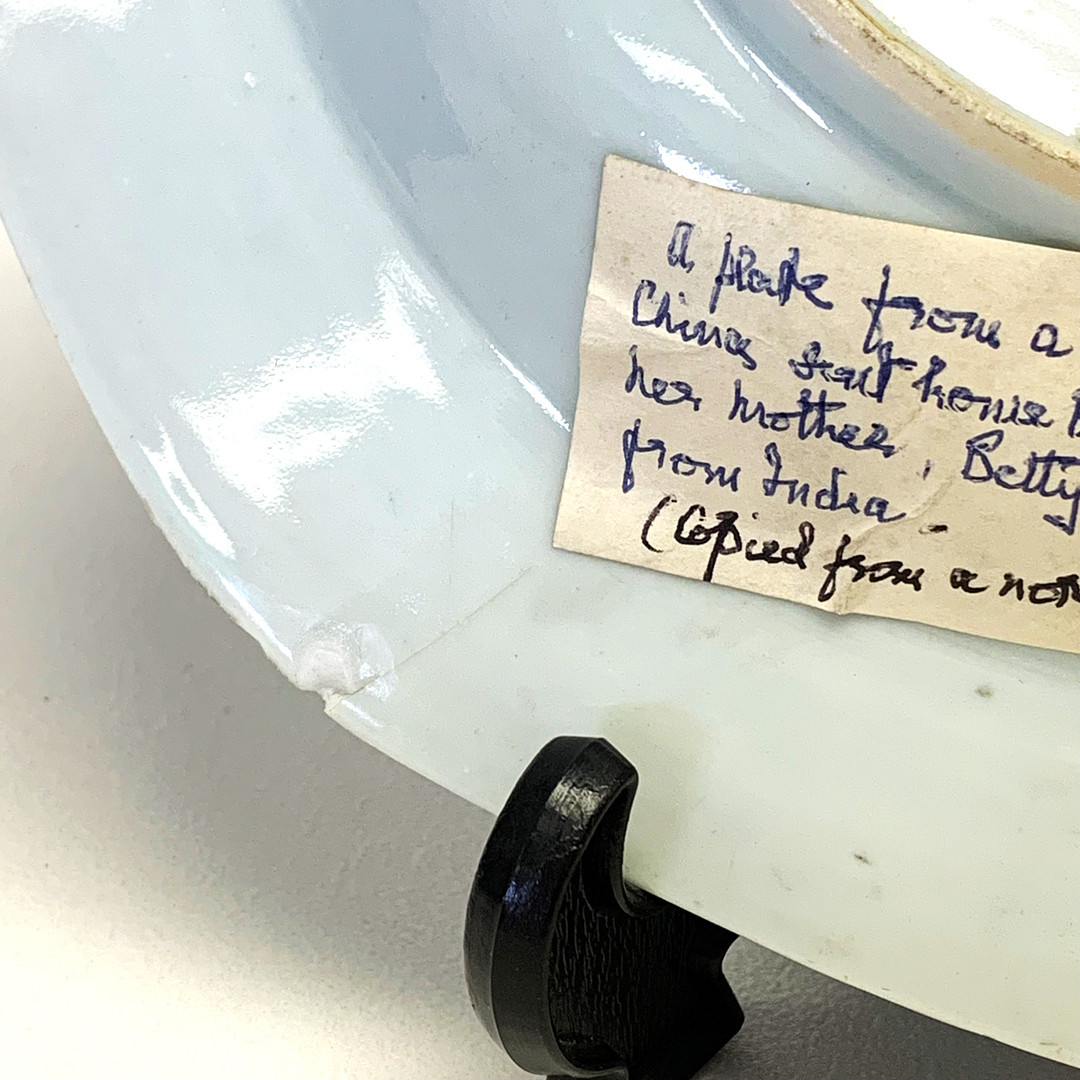 A plate from a
China sent home
her mother, Betty
from India -
(Copied from a